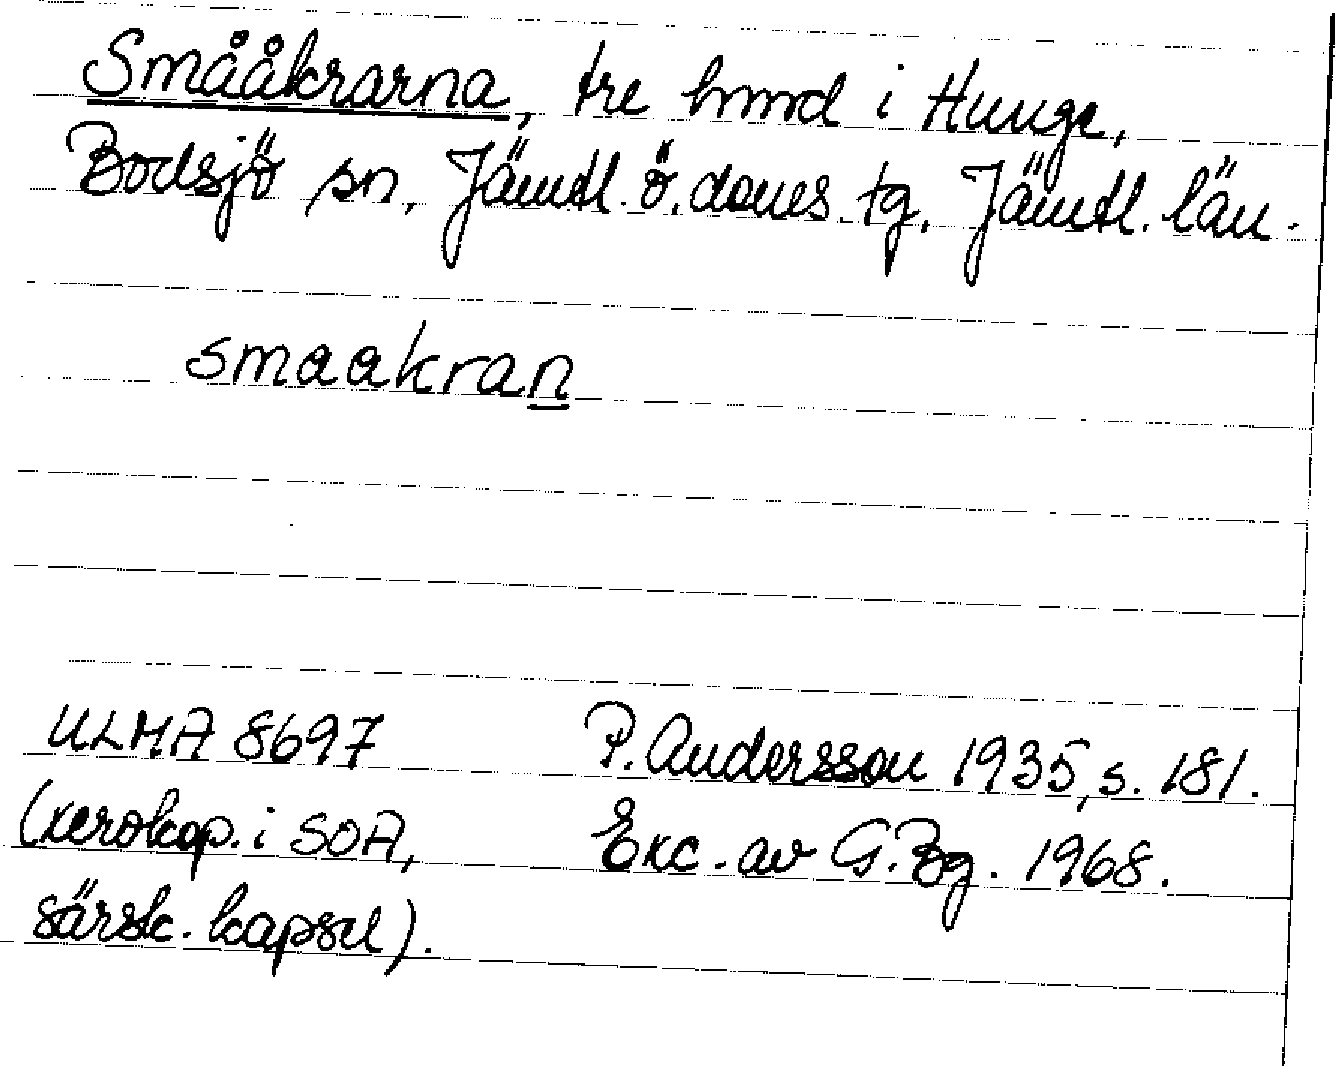 Småäkrarna, tre hmd i Hunge,
Bodsjö sn, Jämtl. ö. doms. tg, Jämtl. län.
smaakran
ULMA 8697
P. Andersson 1935, s. 181.
(xerokop. i SOA,
Exc. av G. Bg. 1968.
särsk. kapsel).